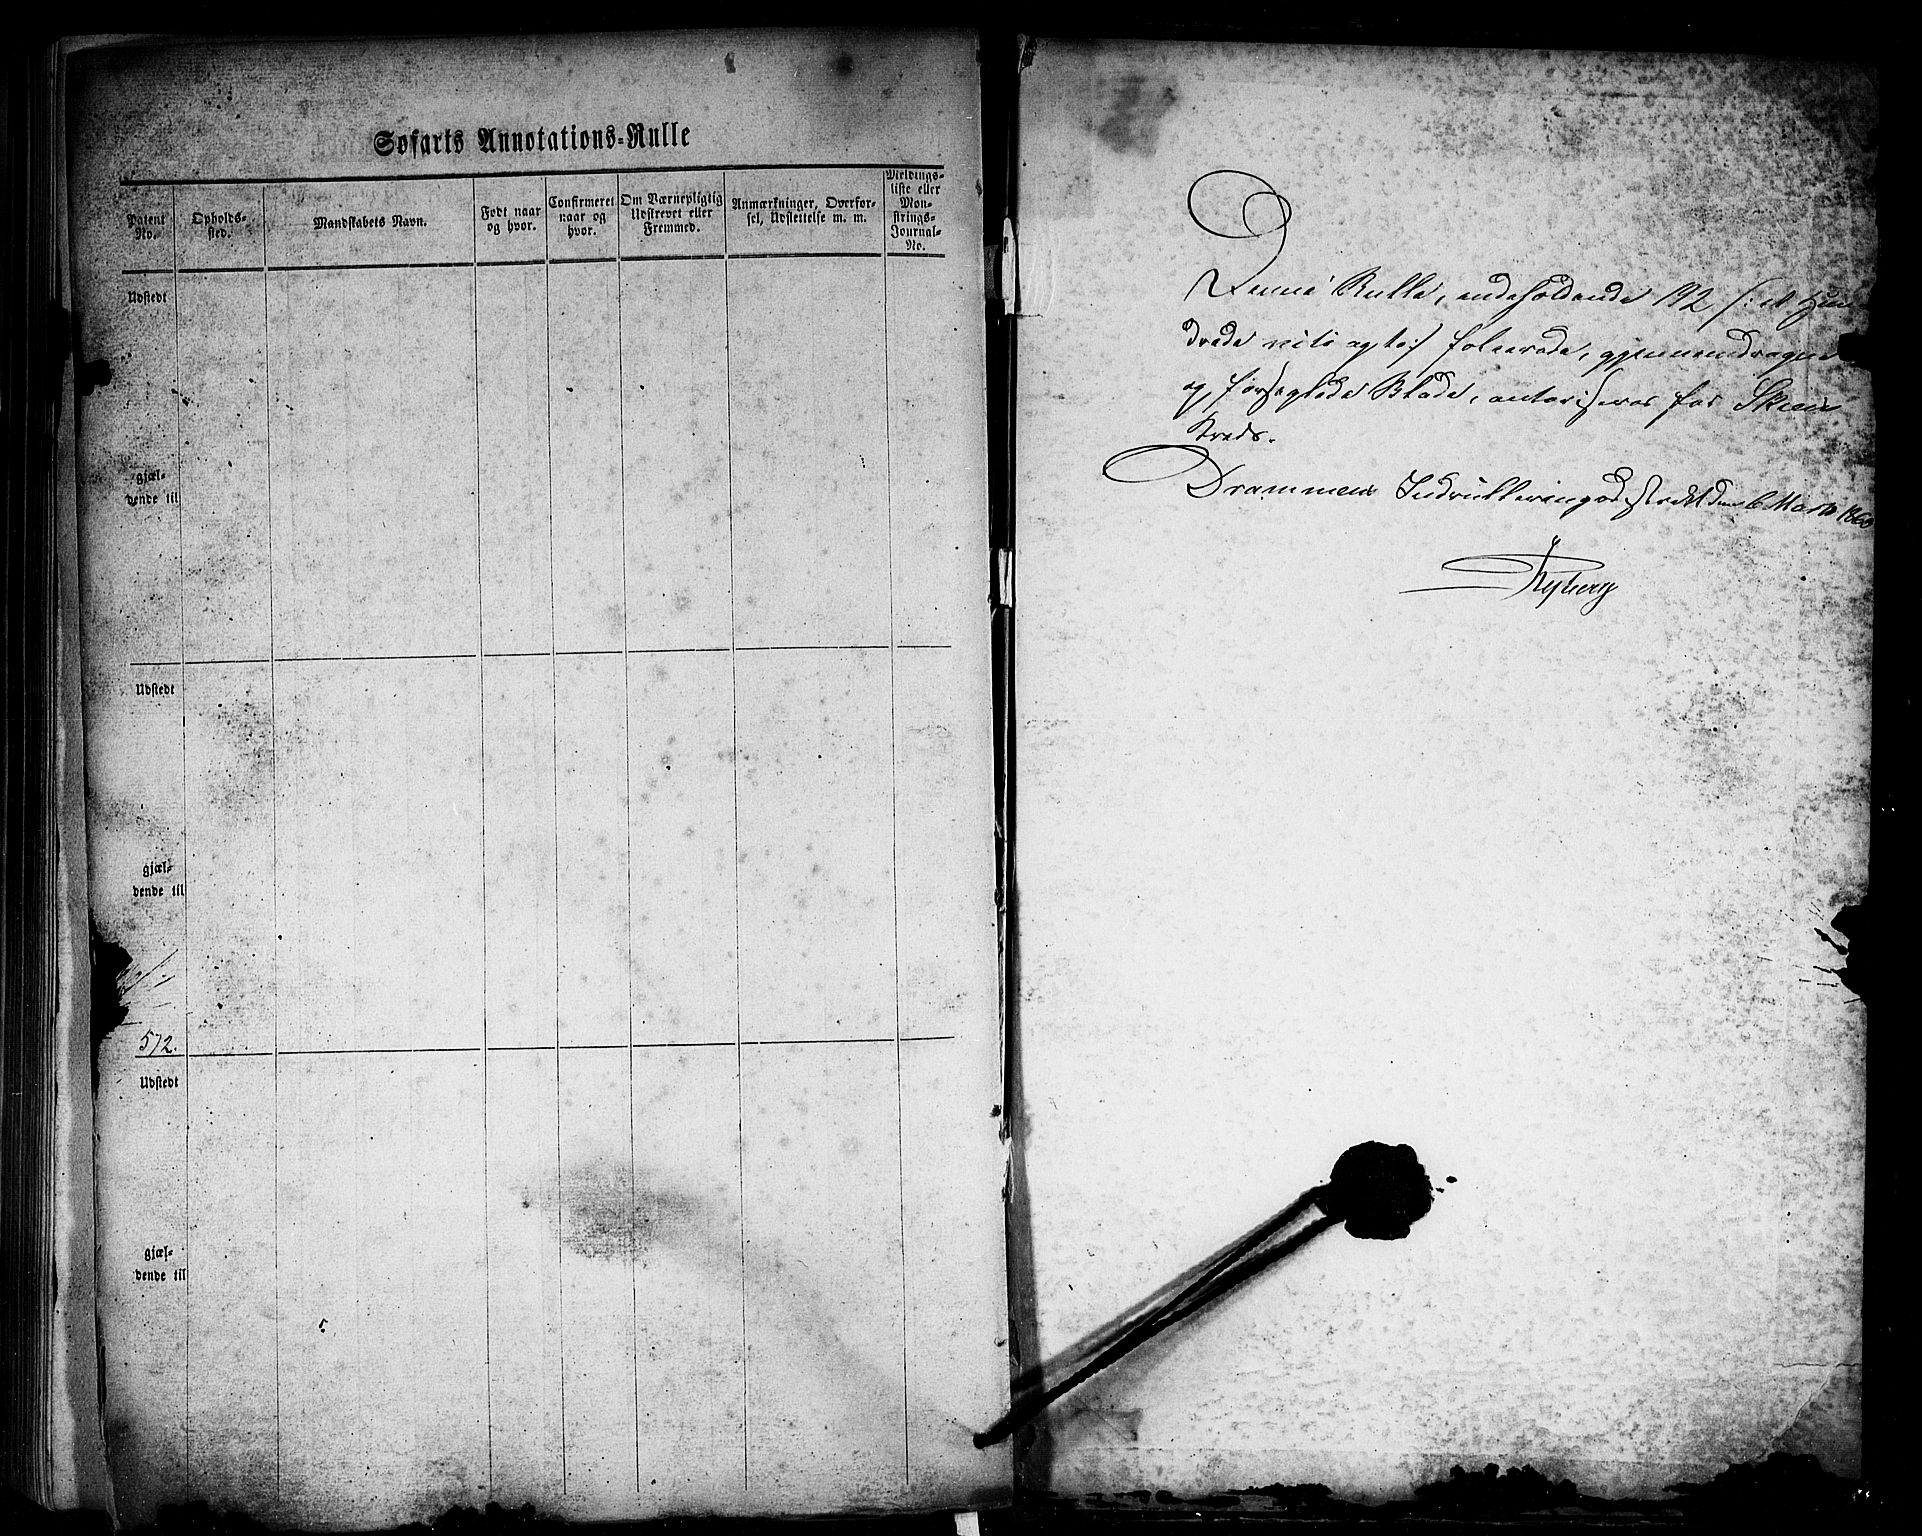 Søfarts Annotations-Rulle
Patent No.
Opholds-sted.
Mandskabets Navn.
Født naar og hvor.
Confirmeret naar og hvor.
Om Værnepligtig Udskrevet eller Fremmed.
Anmærkninger, Overførsel, Udslettelse m. m.
Meldingsliste eller Mønstrings-Journal-No.
Udstedt
gjæl-
dende til
Udstedt
gjæl-
dende til
572.
Udstedt
gjæl-
dende til
Denne Rulle, indeholdende 192 /: et Hun
drede niti og to :/ folierede, gjennemdragne
og forseglede Blade, autoriseres for Skien
Kreds.
Drammens Indrulleringsdistrikt den 6 Marts 1860
Ryberg